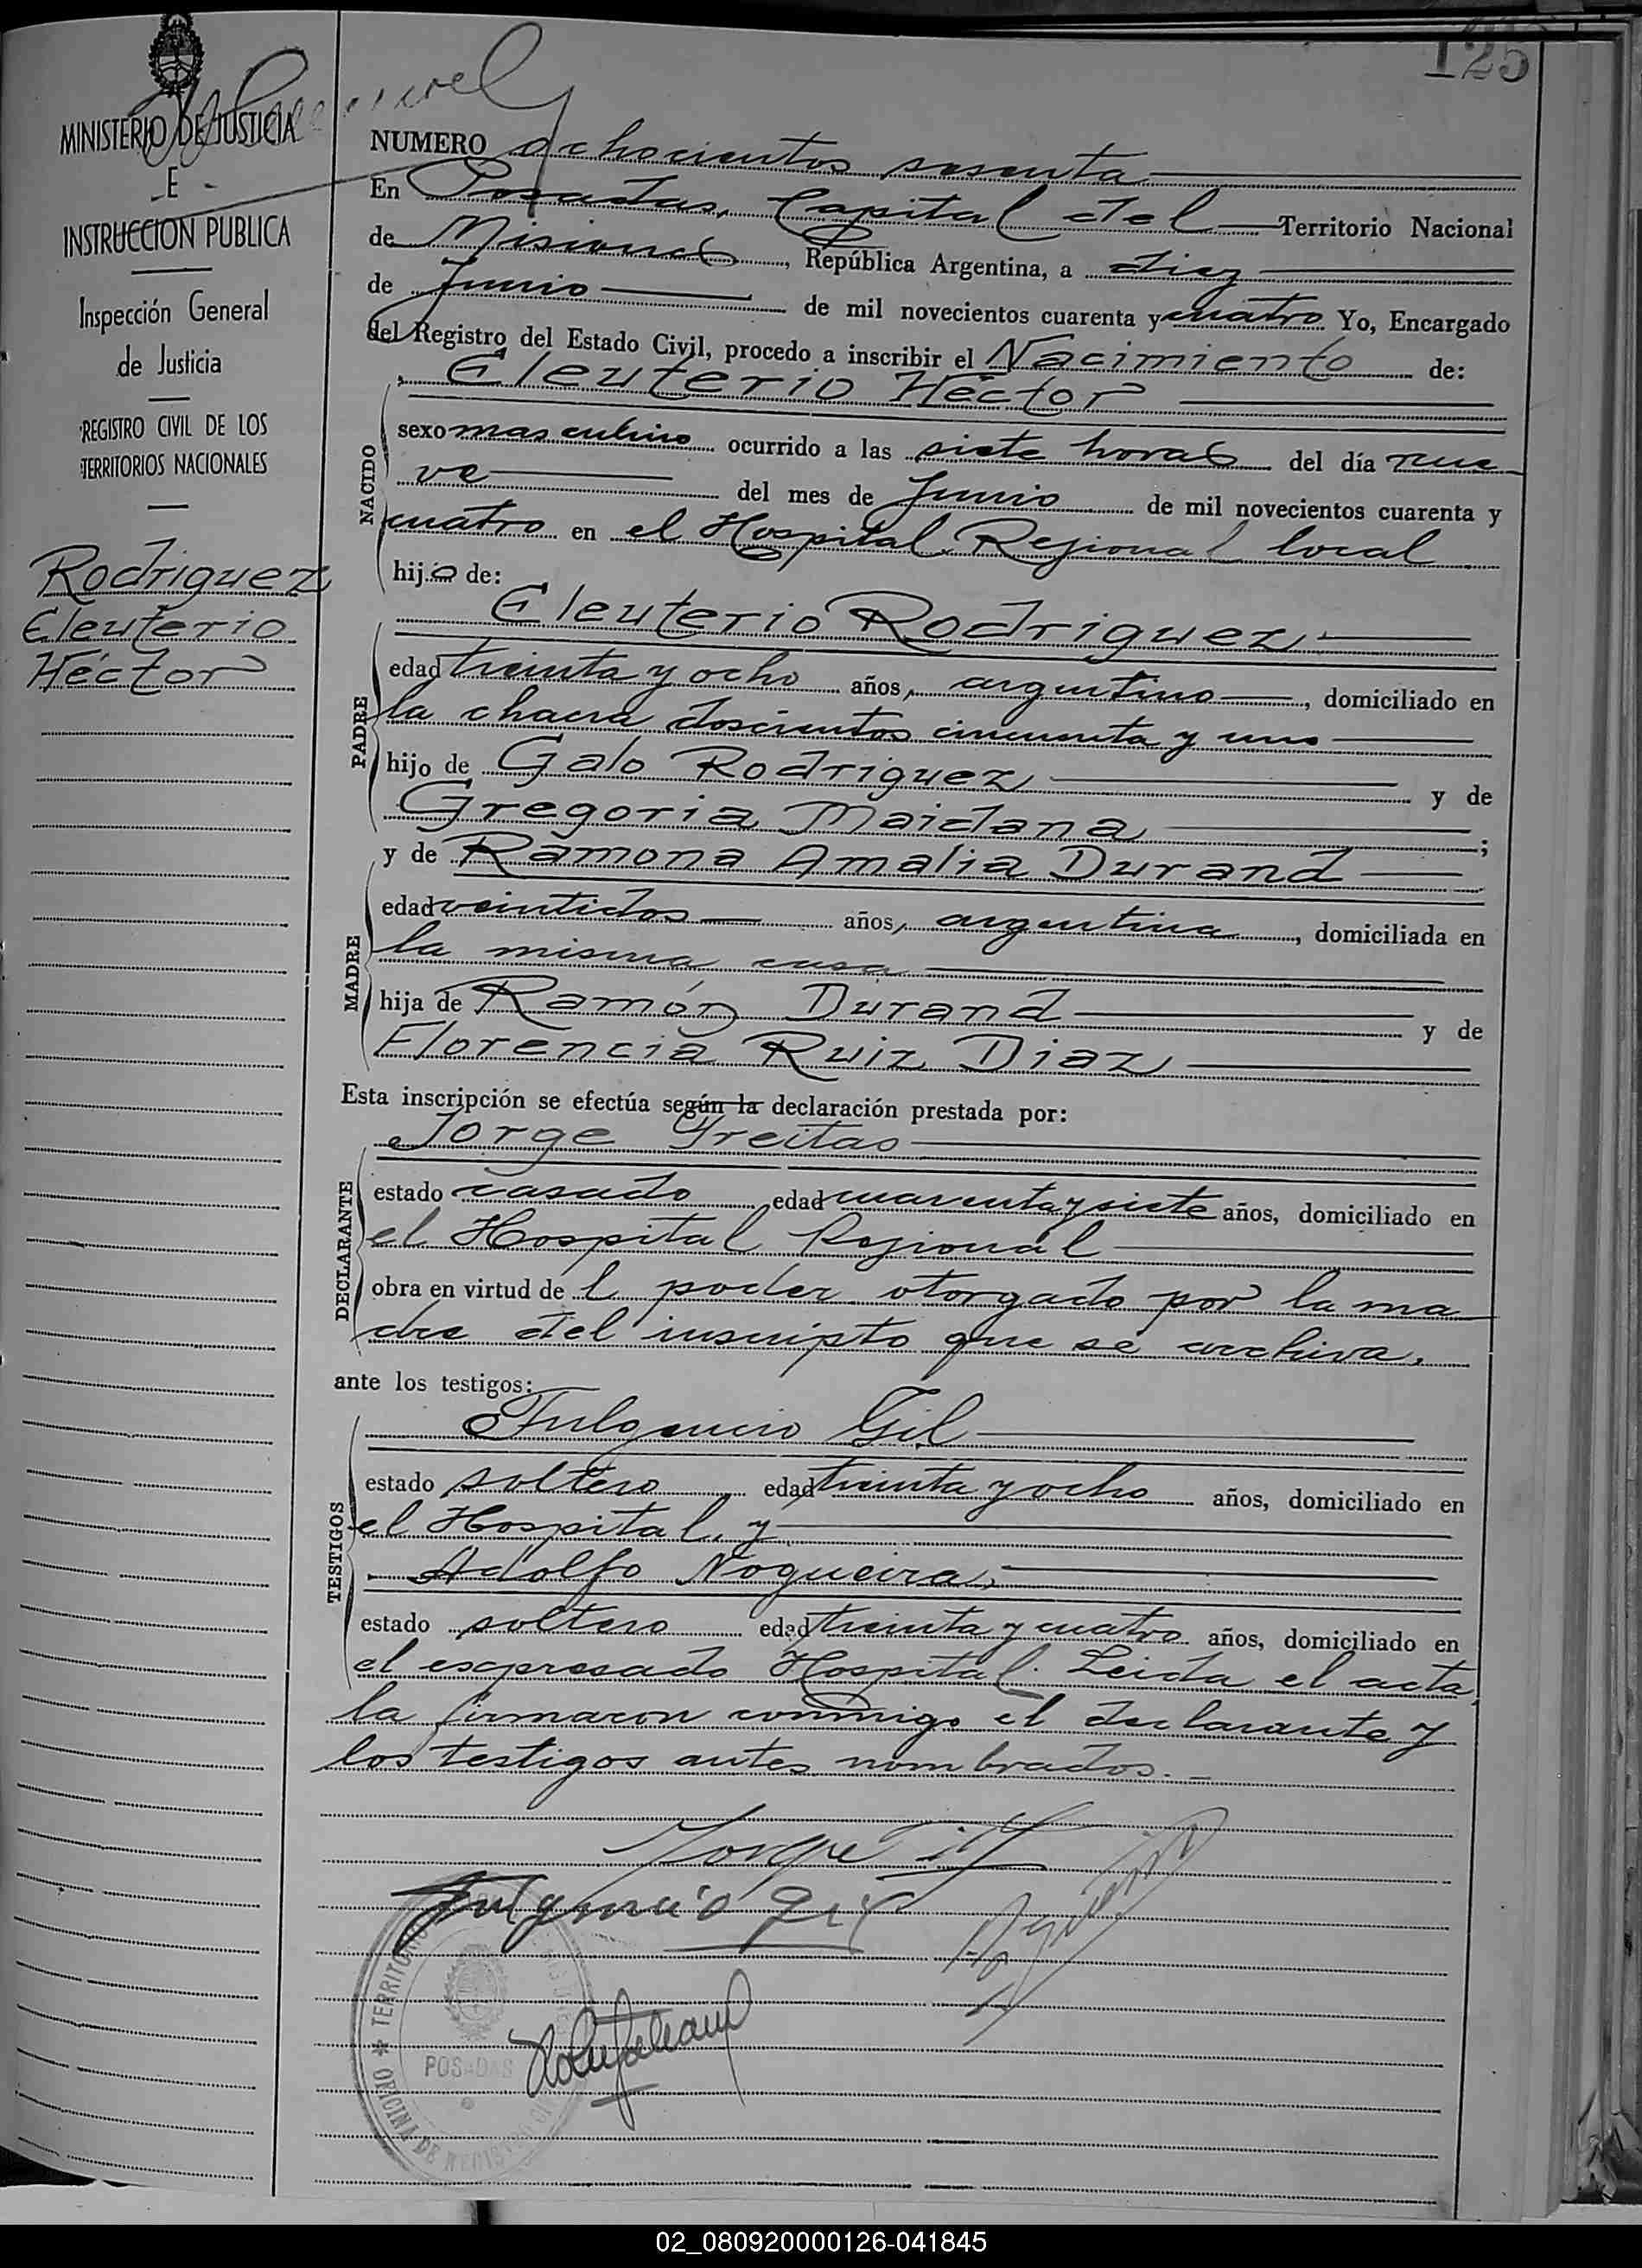 125
MINISTERIO DE JUSTICIA
E
INSTRUCCION PUBLICA
Inspección General
de Justicia
REGISTRO CIVIL DE LOS
TERRITORIOS NACIONALES
Rodriguez
Eleuterio
Héctor
NUMERO ochocientos sesenta
En Posadas, Capital del Territorio Nacional
de Misiones, República Argentina, a diez
de Junio de mil novecientos cuarenta y cuatro Yo, Encargado
del Registro del Estado Civil, procedo a inscribir el Nacimiento de:
Eleuterio Héctor
NACIDO
sexo masculino ocurrido a las siete horas del día nue
ve del mes de Junio de mil novecientos cuarenta y
cuatro en el Hospital Regional local
hijo de:
Eleuterio Rodriguez
PADRE
edad treinta y ocho años, argentino, domiciliado en
la chacra doscientos cincuenta y uno
hijo de Galo Rodriguez y de
Gregoria Maidana;
y de Ramona Amalia Durand
MADRE
edad veintidos años, argentina, domiciliada en
la misma casa
hija de Ramón Durand y de
Florencia Ruiz Diaz
Esta inscripción se efectúa según la declaración prestada por:
Jorge Freitas
DECLARANTE
estado casado edad cuarenta y siete años, domiciliado en
el Hospital Regional
obra en virtud de l poder otorgado por la ma
dre del inscripto que se archiva.
ante los testigos:
Fulgencio Gil
TESTIGOS
estado soltero edad treinta y ocho años, domiciliado en
el Hospital, y
Adolfo Nogueira,
estado soltero edad treinta y cuatro años, domiciliado en
el expresado Hospital. Leida el acta,
la firmaron conmigo el declarante y
los testigos antes nombrados.-
Jorge
Fulgencio Gil
TERRITORIO
POSADAS
OFICINA DE REGISTRO CI
02_080920000126-041845